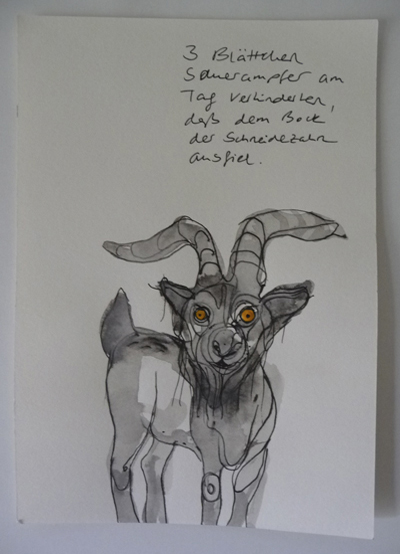 3 Blättchen
Sauerampfer am
Tag verhinderten,
daß dem Bock
der Schneidezahn
ausfiel.